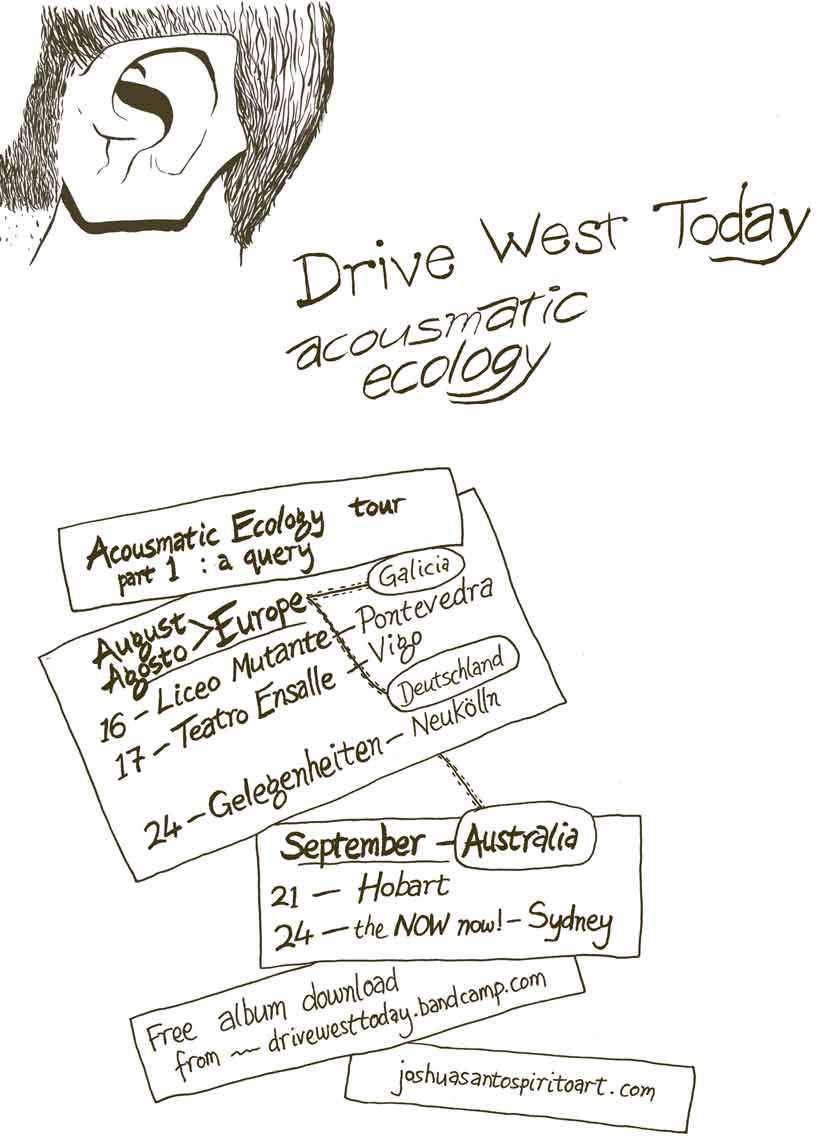 Drive West Today
acousmatic
ecology
Acousmatic Ecology tour
part 1 : a query
August
Agosto > Europe
Galicia
16 – Liceo Mutante – Pontevedra
17 – Teatro Ensalle – Vigo
Deutschland
24 – Gelegenheiten – Neukölln
September – Australia
21 — Hobart
24 — the NOW now! – Sydney
Free album download
from ~ drivewesttoday.bandcamp.com
joshuasantospiritoart.com